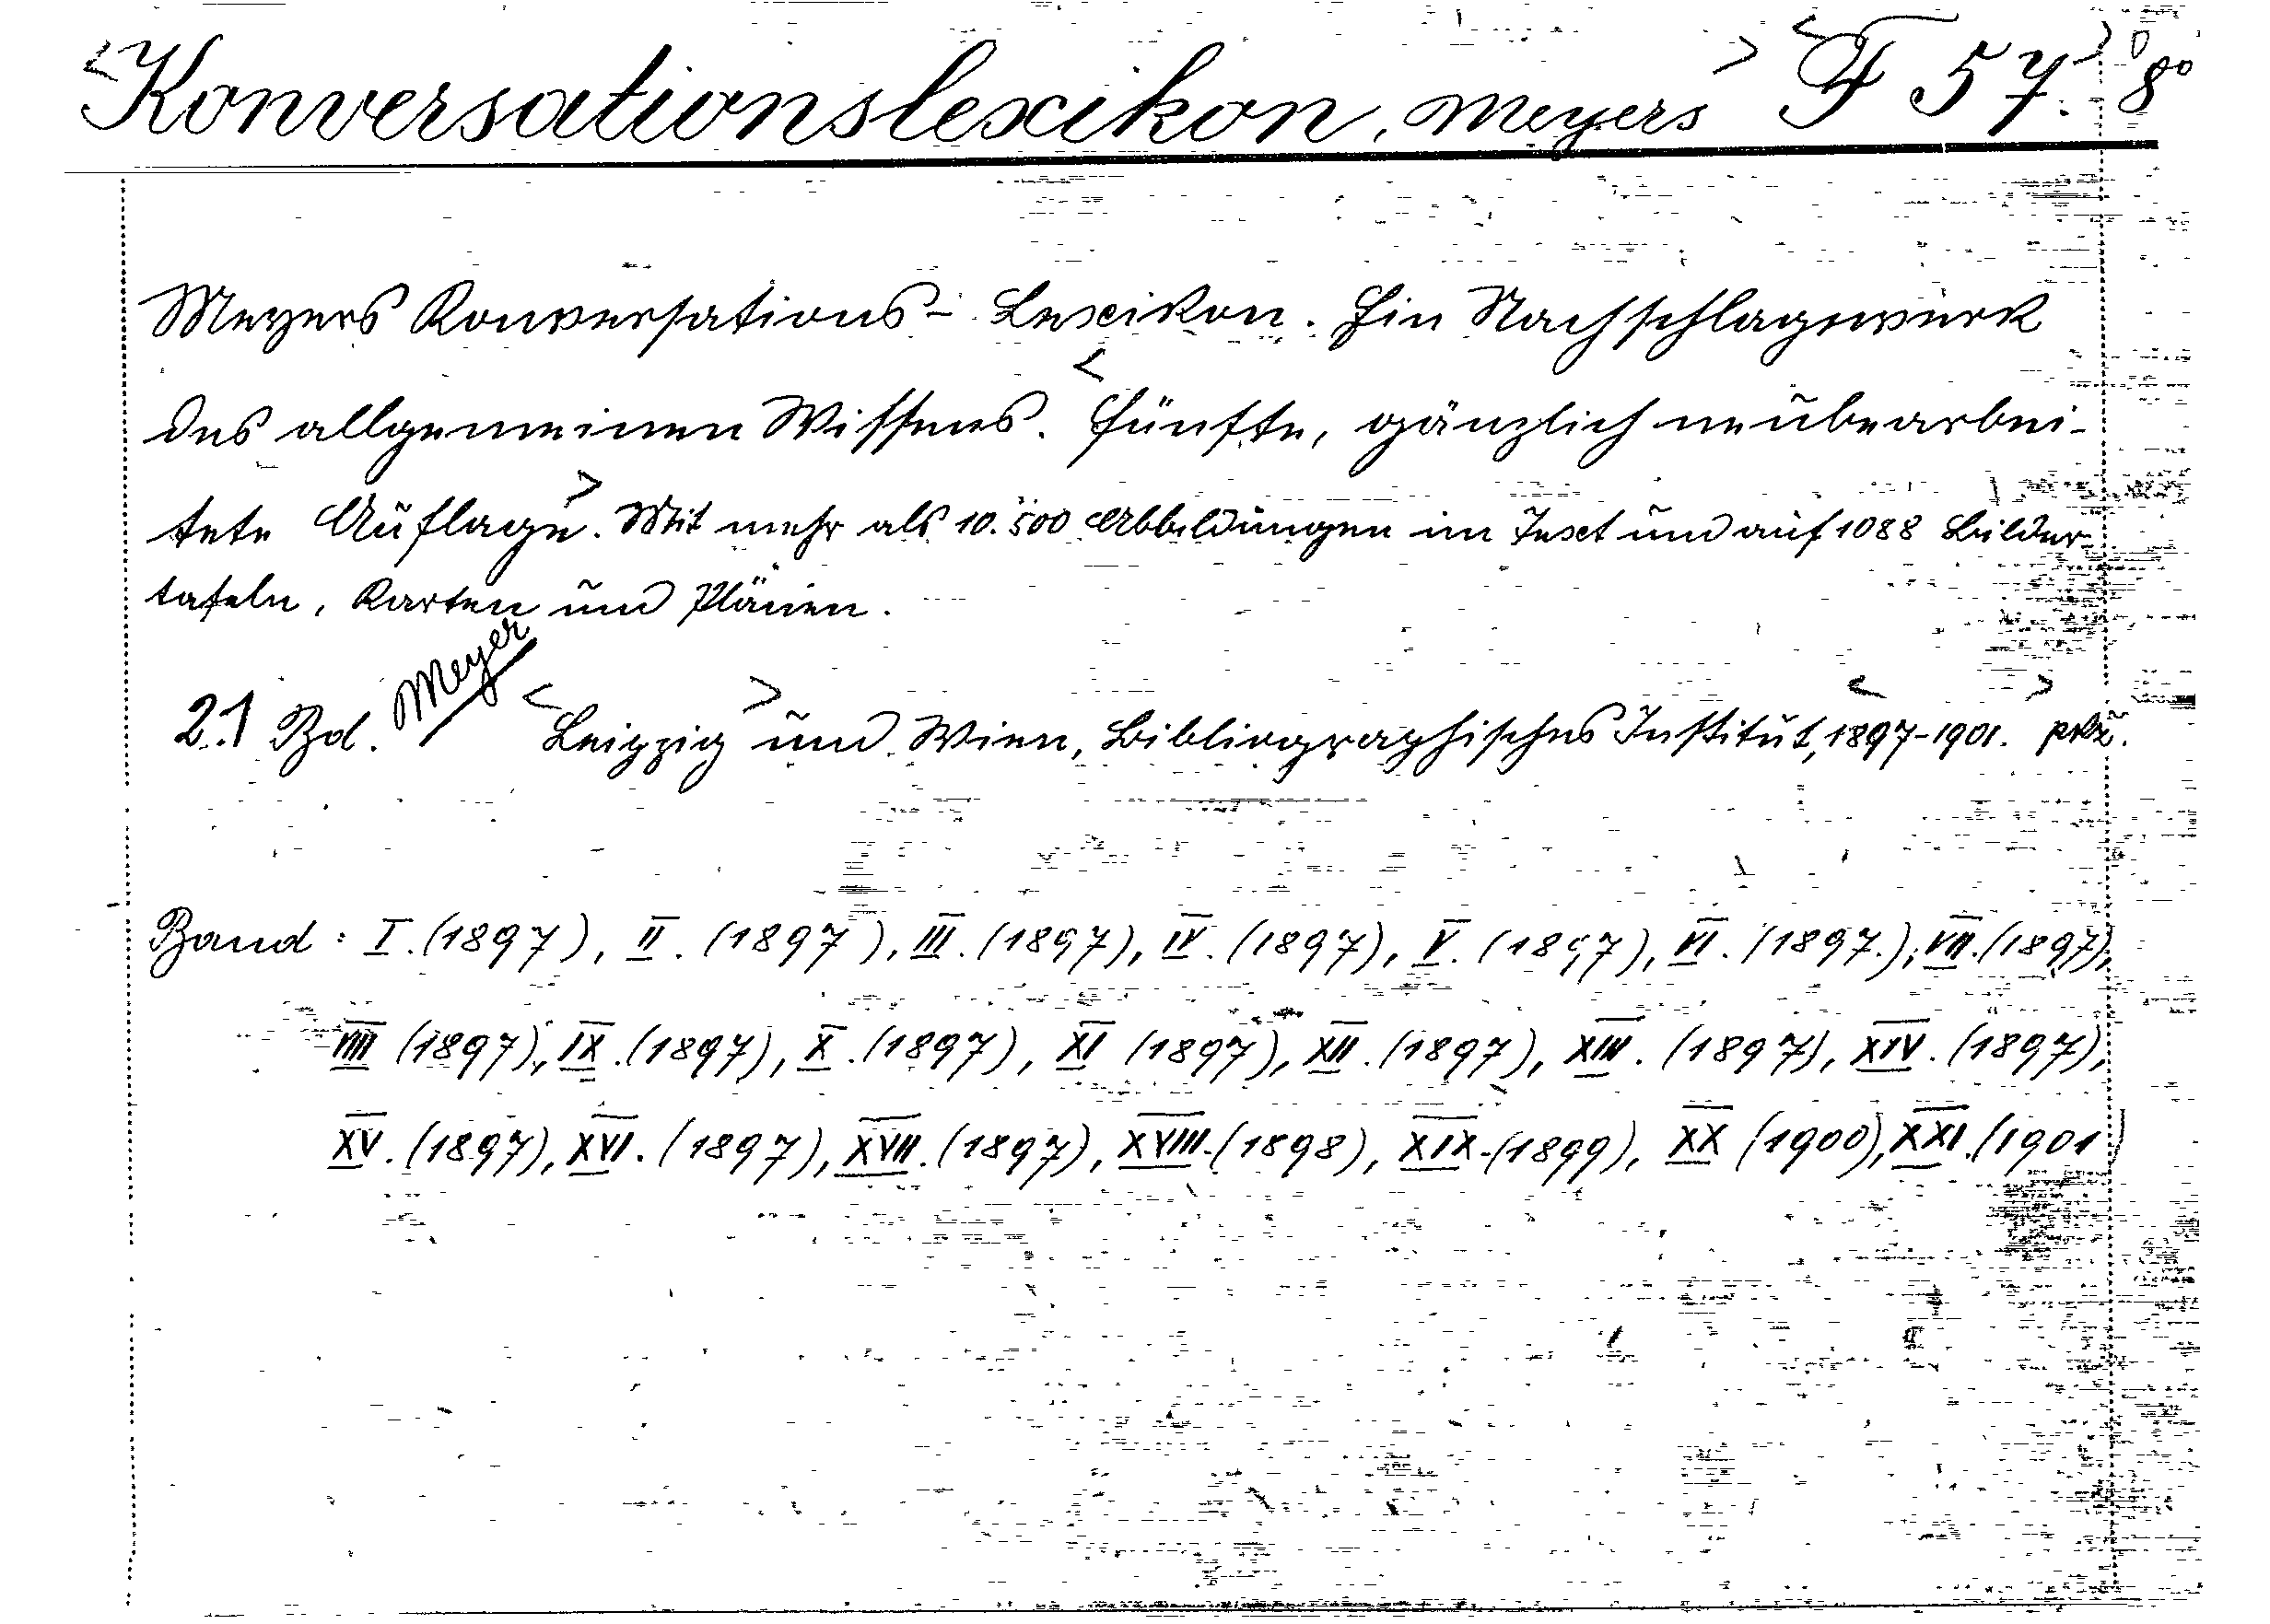 <Konversationslexikon, Meyers> <F 57.> 8°
Meyers Konversations-Lexikon. Ein Nachschlagewerk
des allgemeinen Wissens. <Fünfte, gänzlich neubearbei-
tete Auflage>. Mit mehr als 10.500 Abbildungen im Text und auf 1088 Bilder-
tafeln, Karten und Plänen.
21 Bd. Meyer <Leipzig> und Wien, Bibliographisches Institut, <1897-1901.>
Band: I. (1897), II. (1897), III. (1897), IV. (1897), V. (1897), VI. (1897.), VII. (1897),
VIII (1897), IX. (1897), X. (1897), XI (1897), XII. (1897), XIII. (1897), XIV. (1897),
XV. (1897), XVI. (1897), XVII. (1897), XVIII. (1898), XIX. (1899), XX (1900), XXI. (1901)